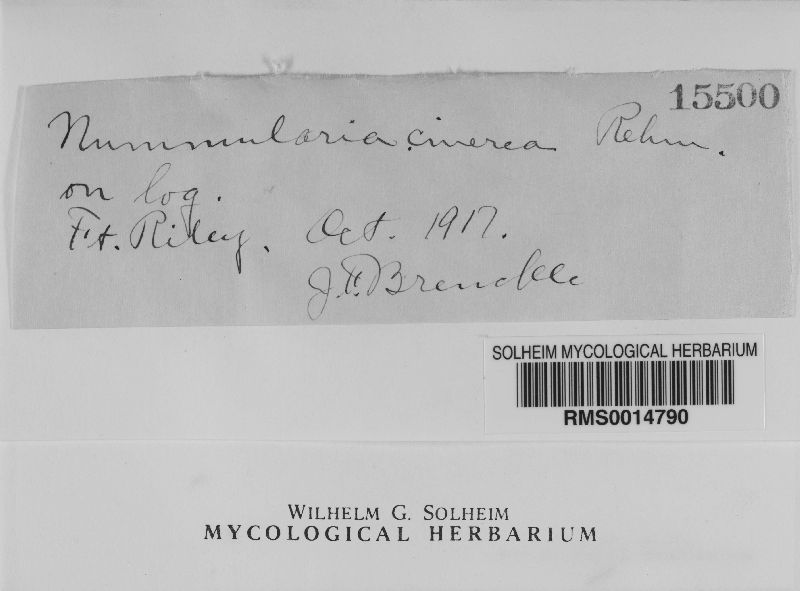 15500
Nummularia cinerea Rehm.
on log.
Ft. Riley. Oct. 1917.
J.F. Brenckle
SOLHEIM MYCOLOGICAL HERBARIUM
RMS0014790
WILHELM G. SOLHEIM
MYCOLOGICAL HERBARIUM